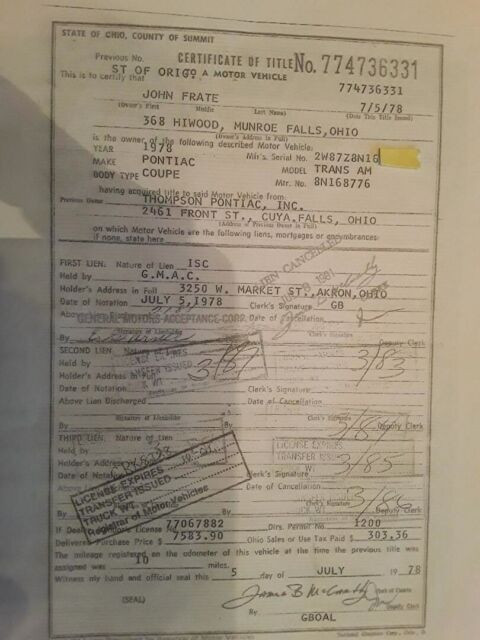 STATE OF OHIO, COUNTY OF SUMMIT
CERTIFICATE OF TITLE No. 774736331
Previous No. ST OF ORIGO A MOTOR VEHICLE
This is to certify that 774736331
JOHN FRATE 7/5/78
(Owner's First Middle Last Name) (Date This Title Issued)
368 HIWOOD, MUNROE FALLS,OHIO
(Owner's Address in Full)
is the owner of the following described Motor Vehicle:
YEAR 1978 Mfr's. Serial No. 2W87Z8N16
MAKE PONTIAC MODEL TRANS AM
BODY TYPE COUPE Mtr. No. 8N168776
having acquired title to said Motor Vehicle from
Previous Owner THOMPSON PONTIAC, INC.
2461 FRONT ST., CUYA.FALLS, OHIO
(Address of Previous Owner in Full)
on which Motor Vehicle are the following liens, mortgages or encumbrances:
if none, state here
LIEN CANCELLED
FIRST LIEN: Nature of Lien ISC
Held by G.M.A.C.
Holder's Address in Full 3250 W. MARKET ST.,AKRON,OHIO
Date of Notation JULY 5,1978 Clerk's Signature GB
Date of Cancellation
GENERAL MOTORS ACCEPTANCE CORP.
By
Signature of Lienholder Clerk's Signature
Deputy Clerk
SECOND LIEN: Nature of Lien
LICENSE EXPIRES
Held by
TRANSFER ISSUED
3/83
Holder's Address in Full
Date of Notation Clerk's Signature
Above Lien Discharged Date of Cancellation
Signature of Lienholder Clerk's Signature
By By Deputy Clerk
THIRD LIEN: Nature of Lien
LICENSE EXPIRES
Held by
TRANSFER ISSUED
3/85
Holder's Address
Date of Notation Clerk's Signature
Date of Cancellation
LICENSE EXPIRES
TRANSFER ISSUED
TRUCK WT.
Registrar of Motor Vehicles
Clerk's Signature
3/86
By Deputy Clerk
If Dealer's License No. 77067882 Dlrs. Permit No. 1200
Delivered Purchase Price $ 7583.90 Ohio Sales or Use Tax Paid $ 303.36
The mileage registered on the odometer of this vehicle at the time the previous title was
assigned was 10 miles.
Witness my hand and official seal this 5 day of JULY 1978
James B McCarthy Clerk of Courts
(SEAL) By Deputy Clerk
GBOAL